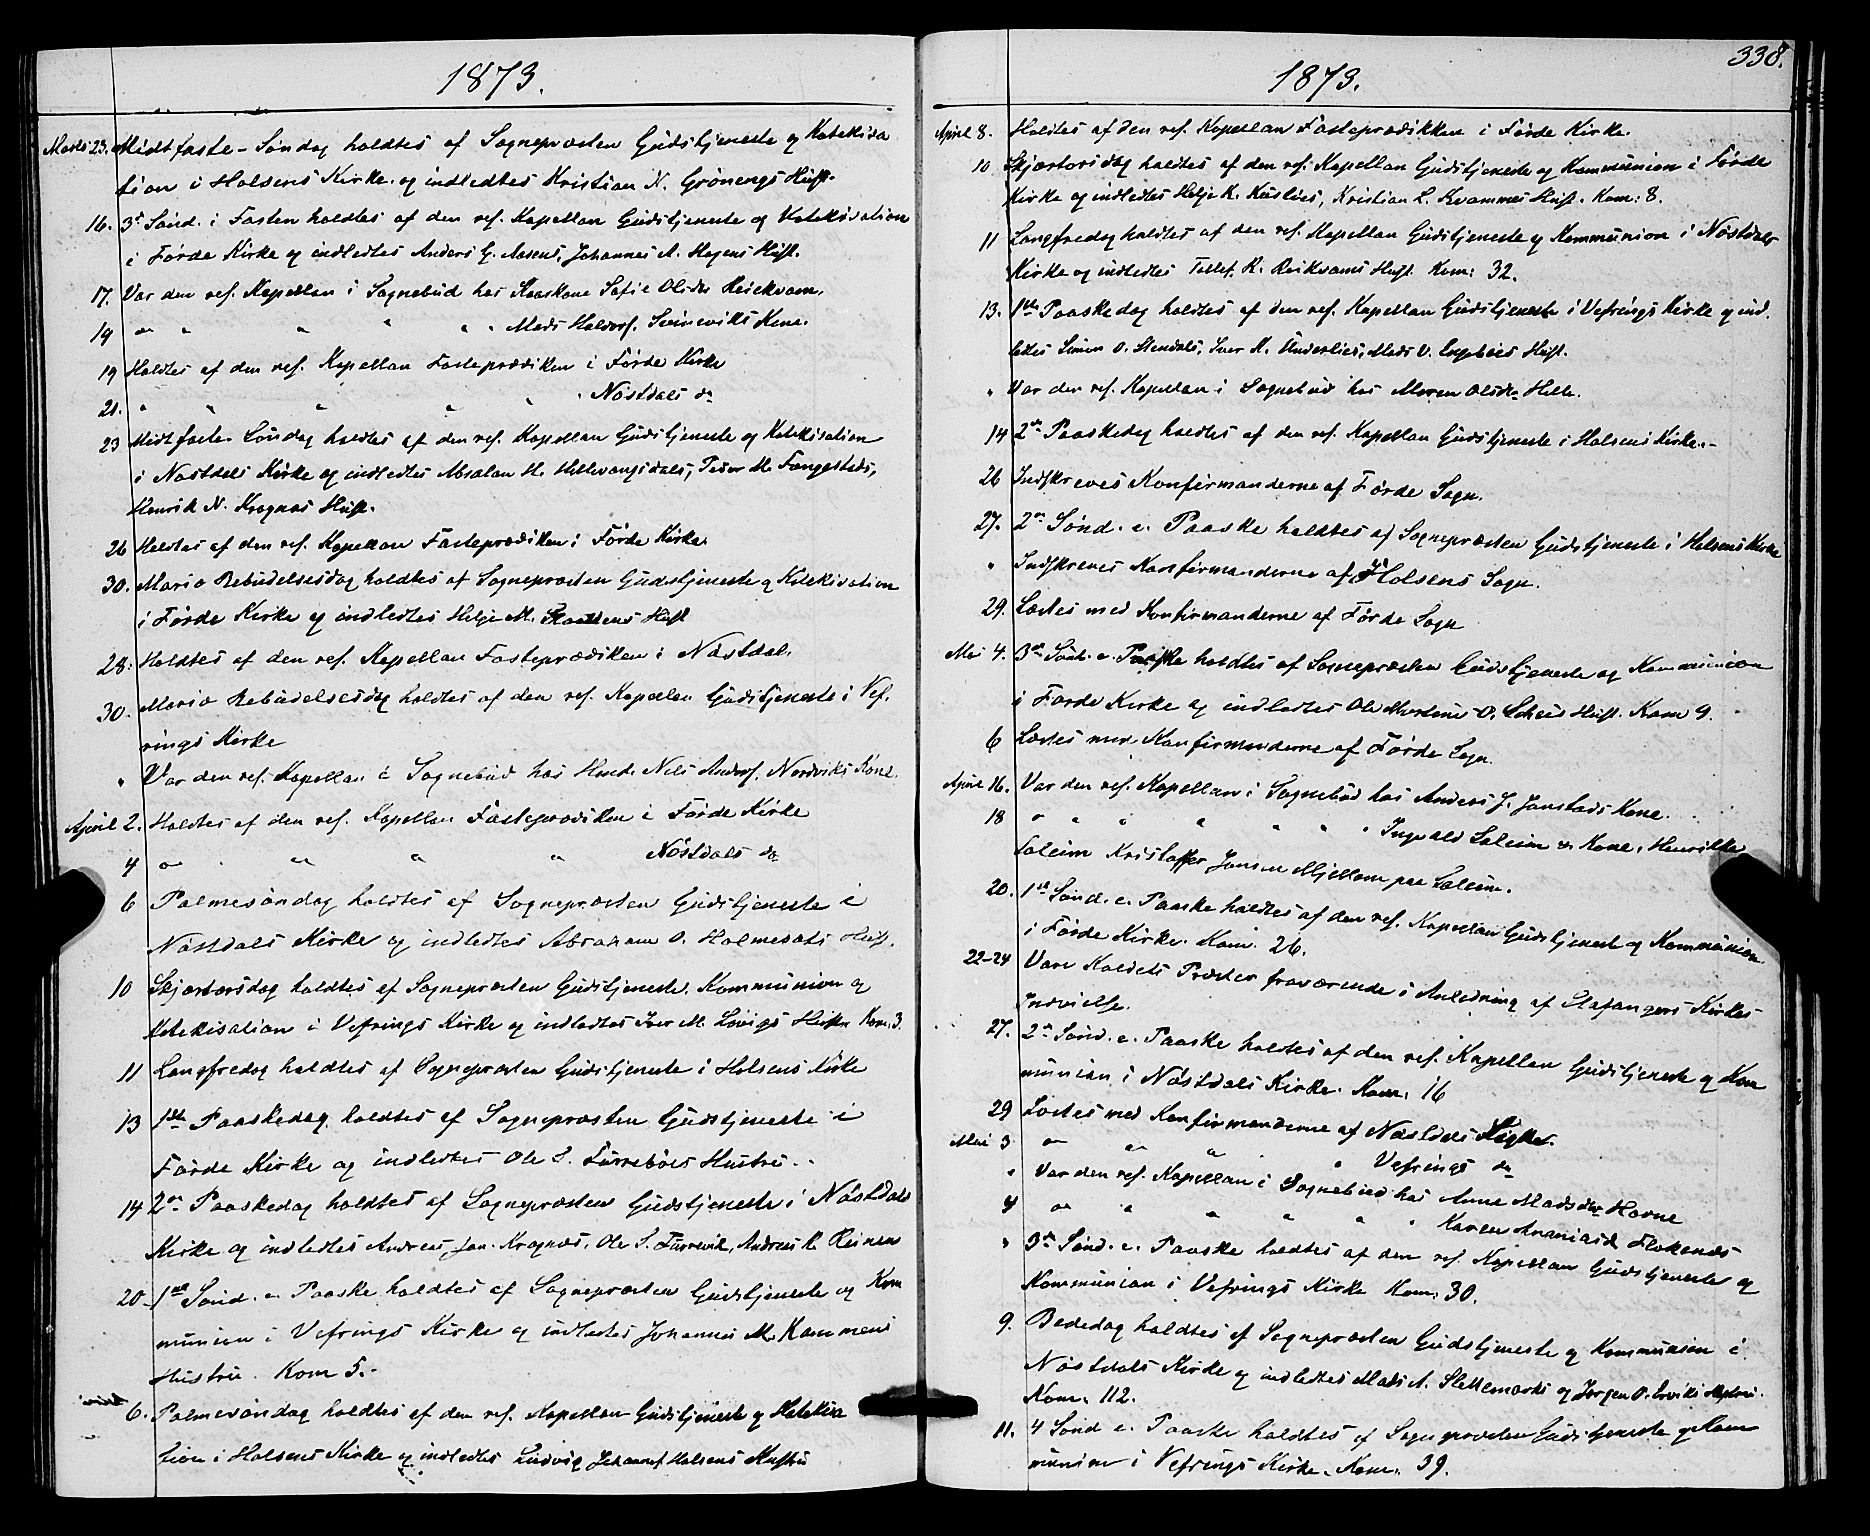 1873.
Marts 23. Midtfaste-Søndag holdtes af Sognepræsten Gudstjeneste og Katekisa
tion i Holsens Kirke og indledtes Kristian N. Grönengs Hust.
16. 3die Sønd. i Fasten holdtes af den res. Kapellan Gudstjeneste og Katekisation
i Førde Kirke og indledtes Anders G. Aasens, Johannes A. Hagens Hust.
17. Var den res. Kapellan i Sognebud hos Sofie Olsdr
19 " " " " " Mads Haldors. Kone.
19 Holdtes af den res. Kapellan Fasteprædiken i Førde Kirke
21. " " " " " Nøstdals do
23 Midtfaste Søndag holdtes af den res. Kapellan Gudstjeneste og Katekisation
i Nøstdals Kirke og indledtes H. Peder M.
Henrik N. Hust.
26 Holdtes af den res. Kapellan Fasteprædiken i Førde Kirke.
30. Mariæ Bebudelsesdag holdtes af Sognepræsten Gudstjeneste og Katekisation
i Førde Kirke og indledtes Helje M. Hust
28. Holdtes af den res. Kapellan Fasteprædiken i Nøstdal.
30. Mariæ Bebudelsesdag holdtes af den res. Kapellan Gudstjeneste i Vef.
rings Kirke
" Var den res. Kapellan i Sognebud hos Nils Anders. Nordviks Kone.
April 2. Holdtes af den res. Kapellan Fasteprædiken i Førde Kirke
4 " " " " Nøstdals do
6 Palmesøndag holdtes af Sognepræsten Gudstjeneste i
Nøstdals Kirke og indledtes Abraham O. Hust.
10 Skjærtorsdag holdtes af Sognepræsten Gudstjeneste, Kommunion og
Katekisation i Vefrings Kirke og indledtes Iver M. Kom. 3.
11 Langfredag holdtes af Sognepræsten Gudstjeneste i Holsens Kirke
13 1ste Paaskedag holdtes af Sognepræsten Gudstjeneste i
Førde Kirke og indledtes Ole S. Furrebøes Hustru.
14 2den Paaskedag holdtes af Sognepræsten Gudstjeneste i Nøstdals
Kirke og indledtes Andreas Jon. Ole S. Furrevik, Andreas
20 1ste Sønd. e. Paaske holdtes af Sognepræsten Gudstjeneste og Kom
munion i Vefrings Kirke og indledtes Johannes M.
Hustru. Kom 5.
6. Palmesøndag holdtes af den res. Kapellan Gudstjeneste og Katekisa
tion i Holsens Kirke og indledtes Ludvig Johannes Holsens Hustru
338.
1873.
April 8. Holdtes af den res. Kapellan Fasteprædikken i Førde Kirke.
10 Skjærtorsdag holdtes af den res. Kapellan Gudstjeneste og Kommunion i Førde
Kirke og indledtes Helje K. Kusslies, Kristian L. Kvammes Hust. Kom: 8.
11 Langfredag holdtes af den res. Kapellan Gudstjeneste og Kommunion i Nøstdals
Kirke og indledtes Tollef R. Hust. Kom: 32.
13. 1ste Paaskedag holdtes af den res. Kapellan Gudstjeneste i Vefrings Kirke og ind.
ledtes Simon O. Stendals, Iver M. Underlies, Mads V. Engebøes Hust.
" Var den res. Kapellan i Sognebud hos Maren Olsdr Helle.
14 2den Paaskedag holdtes af den res. Kapellan Gudstjeneste i Holsens Kirke.
26 Indskreves Konfirmanderne af Førde Sogn.
27. 2den Sønd. e. Paaske holdtes af Sognepræsten Gudstjeneste i Holsens Kirke
" Indskreves Konfirmanderne af Holsens Sogn.
29. Læstes med Konfirmanderne af Førde Sogn
Mai 4. 3die Sønd. e. Paaske holdtes af Sognepræsten Gudstjeneste og Kommunion
i Førde Kirke og indledtes Ole O. Hust. Kom 9.
6 Læstes med Konfirmanderne af Førde Sogn.
April 16. Var den res. Kapellan i Sognebud hos Anders J. Jonstads Kone.
18 " " " " " " Ingvald Soleim Kone, Henrikke
Soleim Kristoffer Jonsen Mjellem paa Soleim.
20. 1ste Sønd. e. Paaske holdtes af den res. Kapellan Gudstjeneste og Kommunion
i Førde Kirke. Kom. 26.
22-24 Vare Kaldets Præster fraværende i Anledning af Kirkes
Indvielse.
27. 2den Sønd. e. Paaske holdtes af den res. Kapellan Gudstjeneste og Kom
munion i Nøstdals Kirke. Kom. 16
29 Læstes med Konfirmanderne af Nøstdals
Mai 3 " " " " Vefrings do
" Var den res. Kapellan i Sognebud hos Anne Madsdtr Hovne
4 " " " " " " Karen Flokenæs
" 3die Sønd. e. Paaske holdtes af den res. Kapellan Gudstjeneste og
Kommunion i Vefrings Kirke Kom. 30.
9. Bededag holdtes af Sognepræsten Gudstjeneste og Kommunion i
Nøstdals Kirke og indledtes Mads A. Slettemarks og Jørgen O. Erviks Hustru.
Kom. 112.
11. 4 Sønd e. Paaske holdtes af Sognepræsten Gudstjeneste og Kom
munion i Vefrings Kirke. Kom. 39.